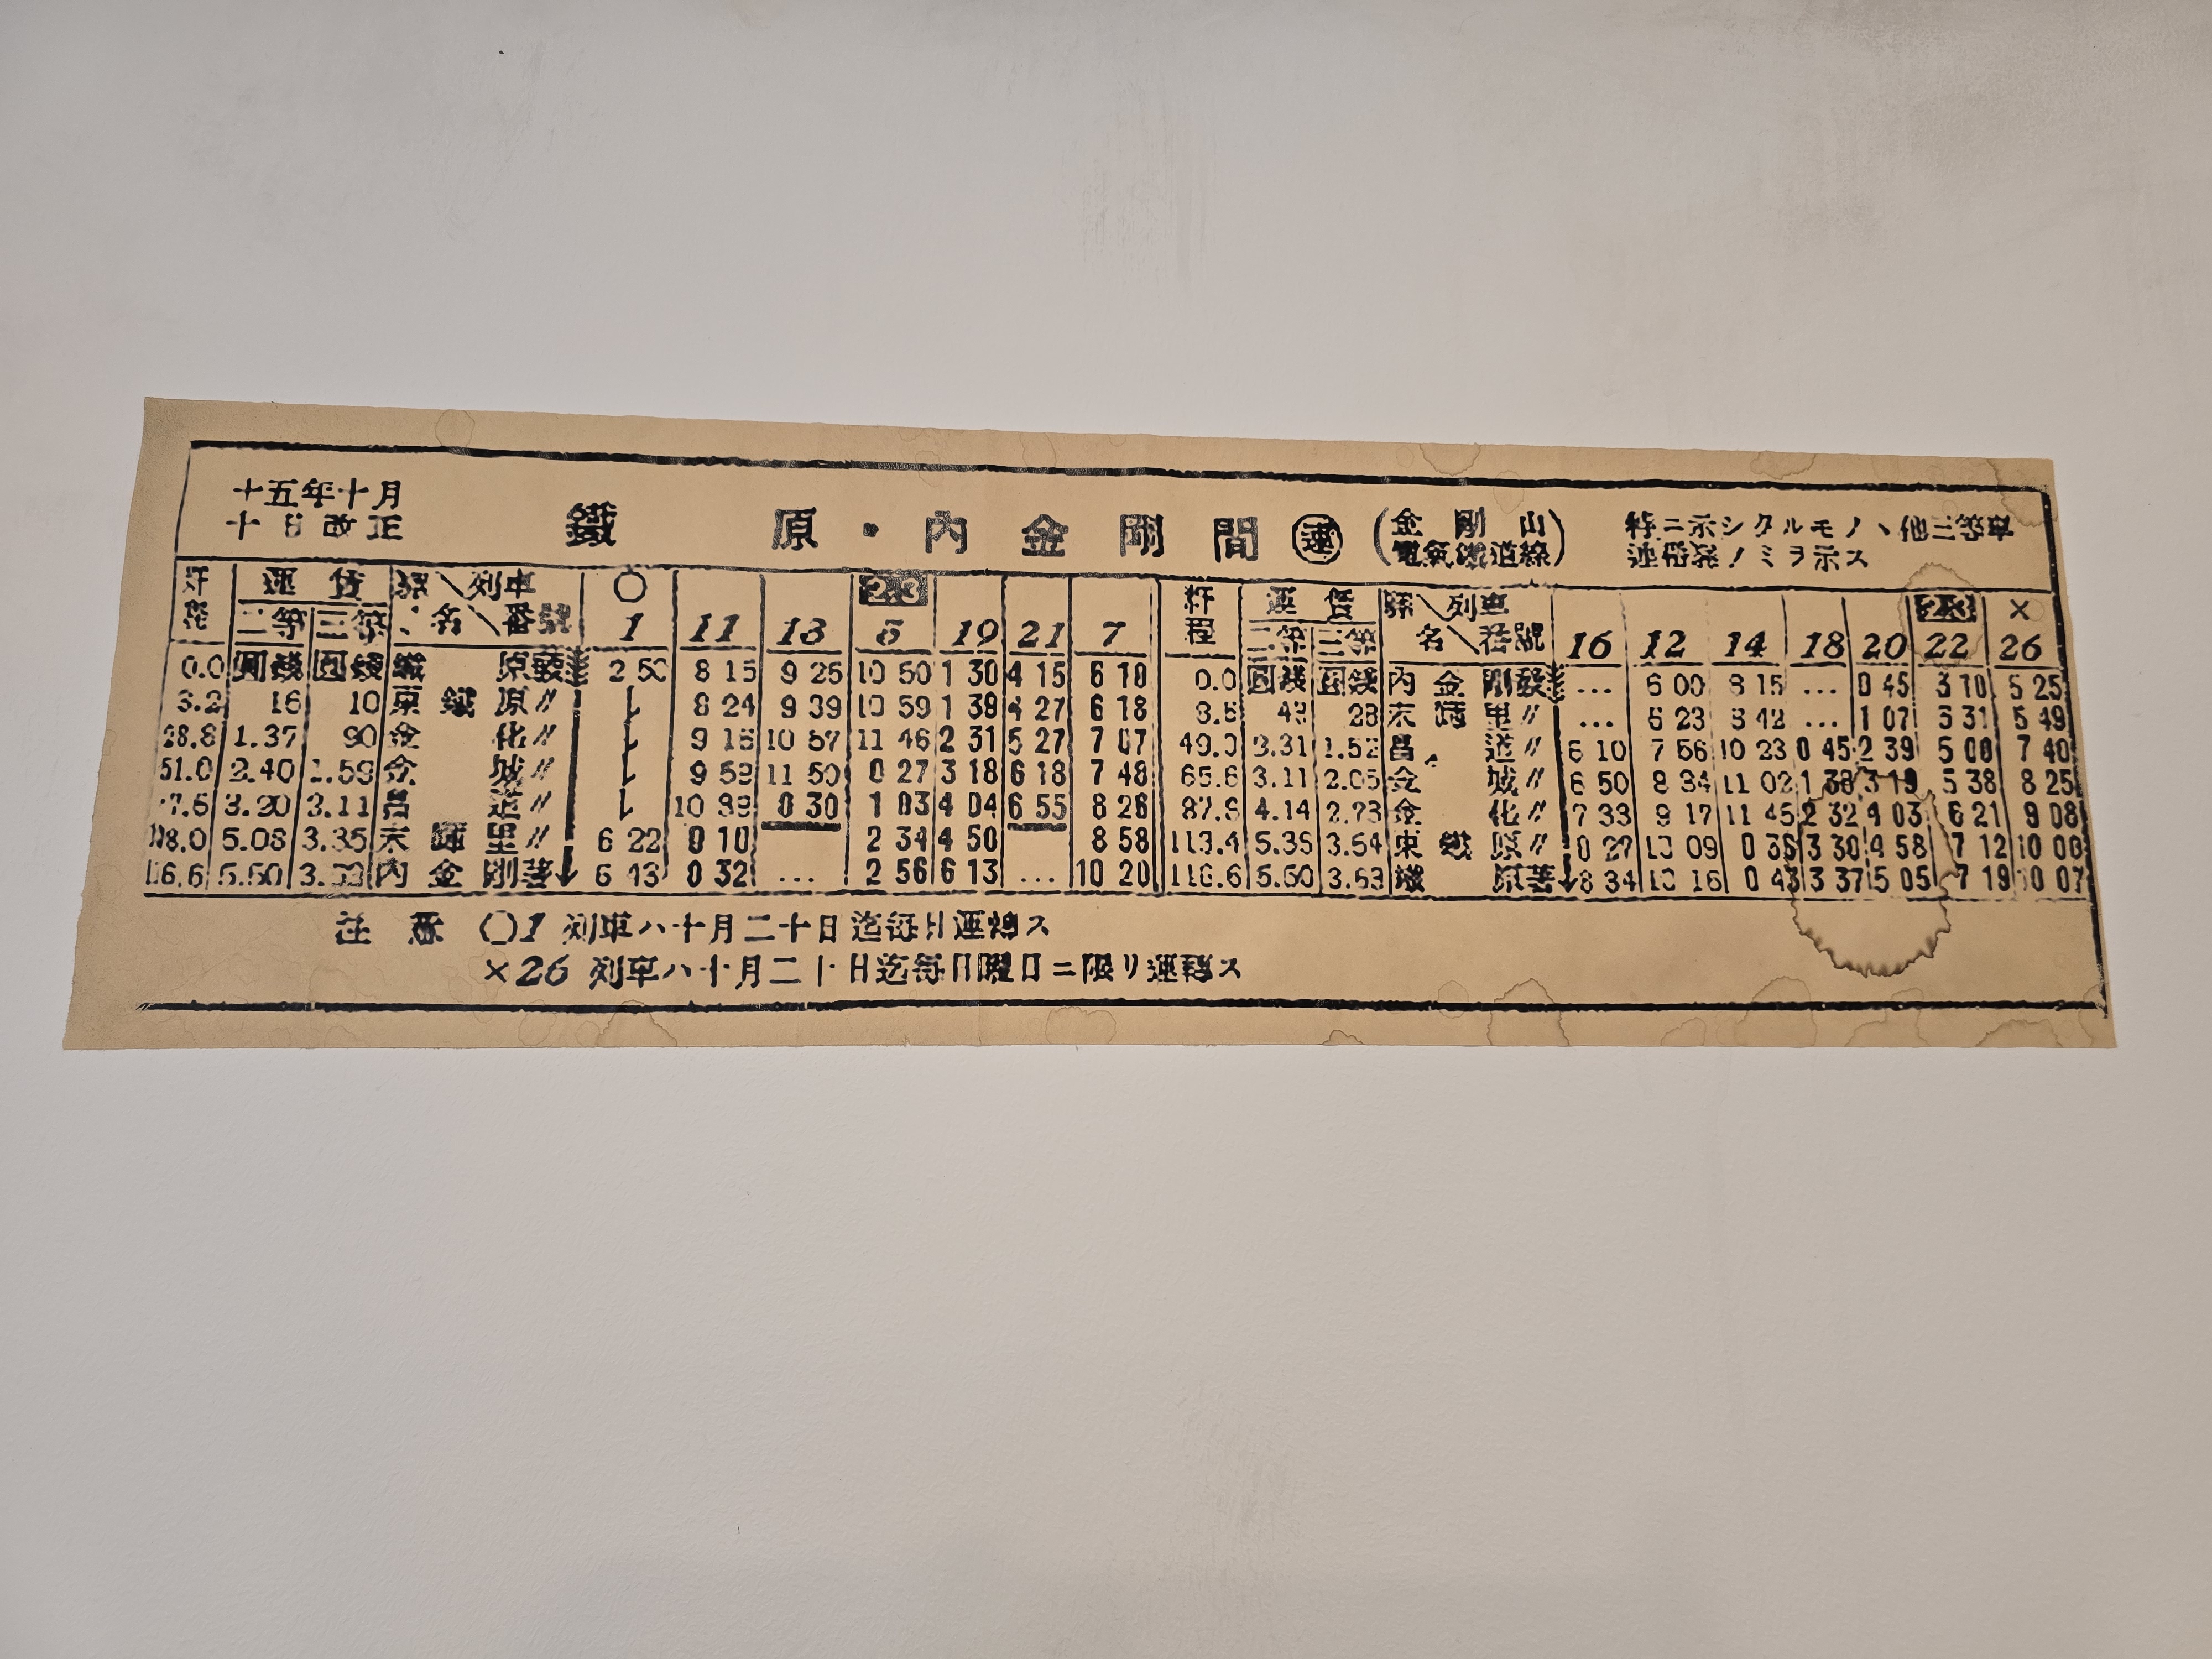 十五年十月
十日改正
鐵原・內金剛間 連 (金剛山電氣鐵道線)
特ニ示シタルモノヽ他三等車
連帶発ノミヲ示ス
運賃 驛名 列車番號 ○ 2.3
二等 三等 1 11 13 5 19 21 7
0.0 圓錢 圓錢 鐵原發 2 50 8 15 9 25 10 50 1 30 4 15 6 10
3.2 16 10 東鐵原〃 8 24 9 39 10 59 1 39 4 27 6 18
28.8 1.37 90 金化〃 9 16 10 57 11 46 2 31 5 27 7 07
51.0 2.40 1.59 金城〃 9 59 11 50 0 27 3 18 6 18 7 48
3.20 昌道〃 10 39 0 30 1 03 4 04 6 55 8 26
5.08 3.35 末輝里〃 6 22 0 10 2 34 4 50 8 58
5.50 內金剛著 6 43 0 32 ... 2 56 6 13 ... 10 20
粁程 運賃 驛名 列車番號 2.3 ×
二等 三等 16 12 14 18 20 22 26
0.0 圓錢 圓錢 內金剛發 ... 6 00 8 15 ... 0 45 3 10 5 25
28 末輝里〃 ... 6 23 8 42 ... 1 07 3 31 5 49
49.0 1.52 昌道〃 6 10 7 56 10 23 0 45 2 39 5 00 7 40
65.6 3.11 2.05 金城〃 6 50 8 34 11 02 1 38 3 19 5 38 8 25
4.14 2.73 金化〃 7 33 9 17 11 45 2 32 4 03 6 21 9 08
113.4 5.35 3.54 東鐵原〃 10 09 0 36 3 30 4 58 7 12 10 00
116.6 5.50 3.63 鐵原著 8 34 10 16 0 43 3 37 5 05 7 19 10 07
注意 ○1 列車ハ十月二十日迄每日運轉ス
×26 列車ハ十月二十日迄每日曜日ニ限リ運轉ス